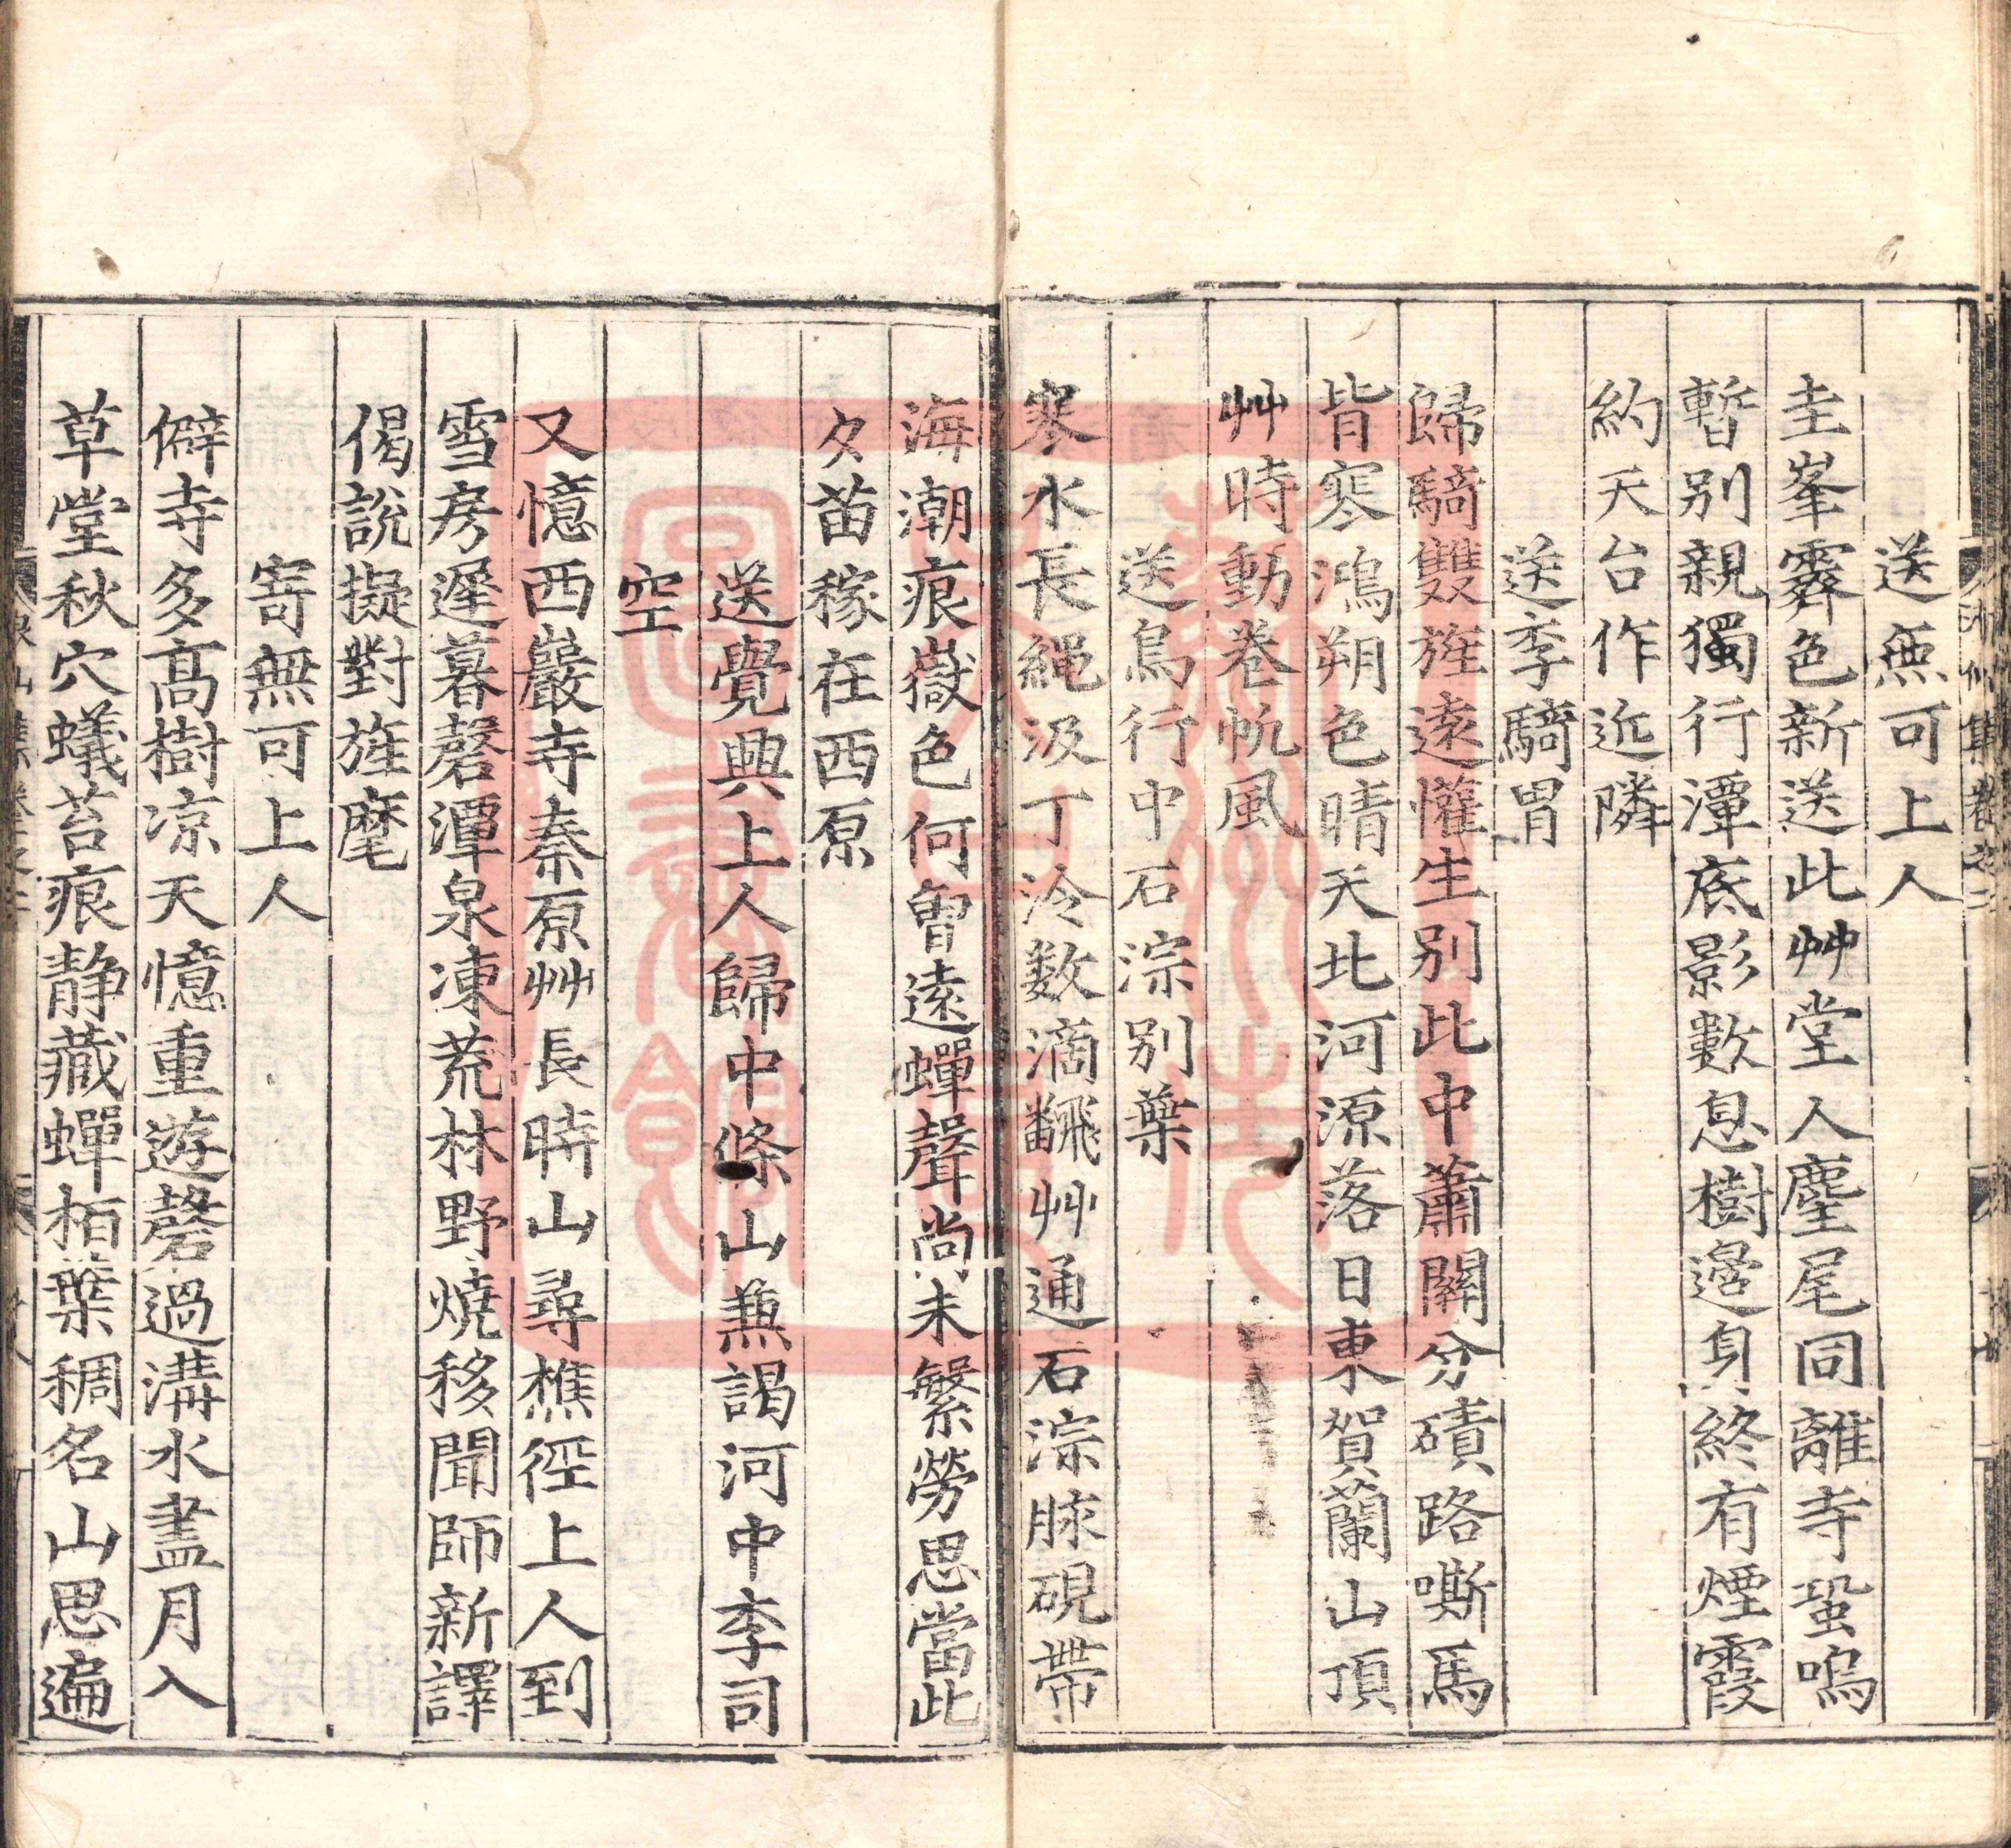 送無可上人
圭峯霽色新送此艸堂人麈尾同離寺蛩鳴
暫别親獨行潭底影數息樹邊身終有煙霞
約天台作近隣
送李騎冑
歸騎雙旌遠懽生别此中蕭關分磧路嘶馬
背寒鴻朔色晴天北河源落日東賀蘭山頂
艸時動卷帆風
送鳥行中石淙别業
寒水長繩汲丁泠数滴飜艸通石淙脉硯帶
海潮痕嶽色何曾遠蟬聲尚未繁勞思當此
夂苗稼在西原
送覺興上人歸中條山兼謁河中李司
空
又憶西巖寺秦原艸長時山尋樵徑上人到
雪房遲暮磬潭泉凍荒林野燒移聞師新譯
偈説擬對旌麾
寄無可上人
僻寺多高樹凉天憶重遊磬過溝水盡月入
草堂秋穴蟻苔痕靜藏蟬栢葉稠名山思遍